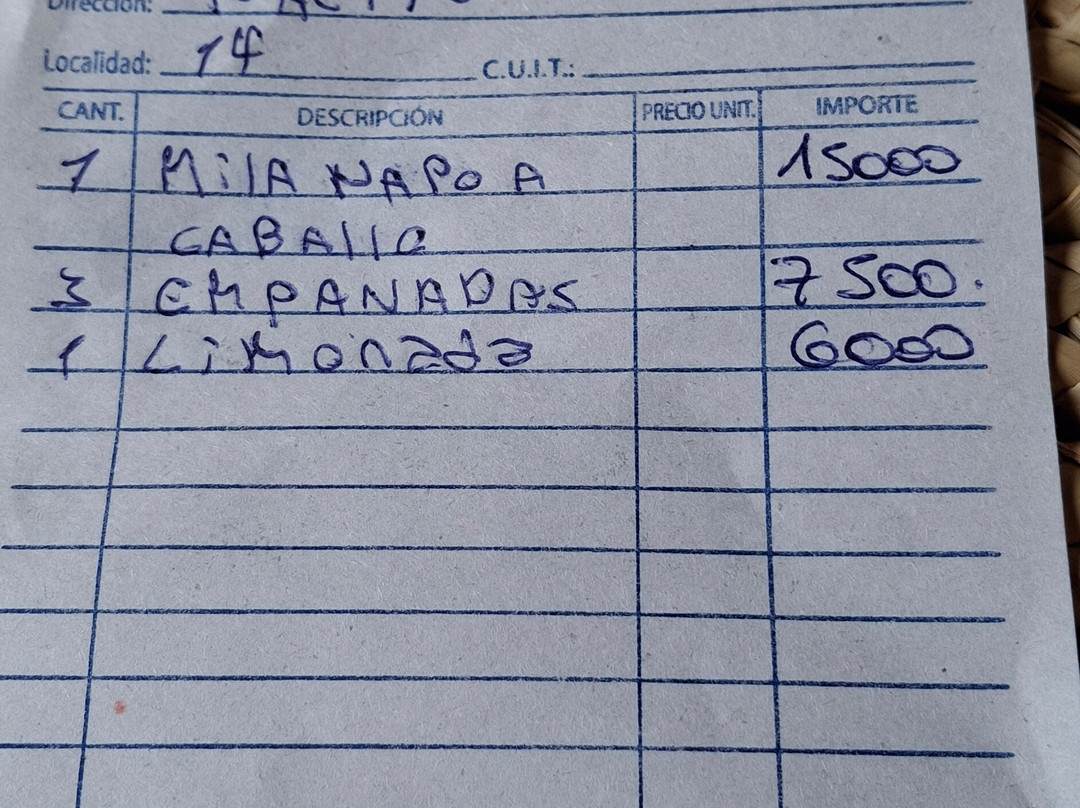 Dirección:
Localidad: 14 C.U.I.T.:
CANT. DESCRIPCIÓN PRECIO UNIT. IMPORTE
1 MilA NAPO A 15000
CABAllO
3 EMPANADAS 7500.
1 Limonada 6000